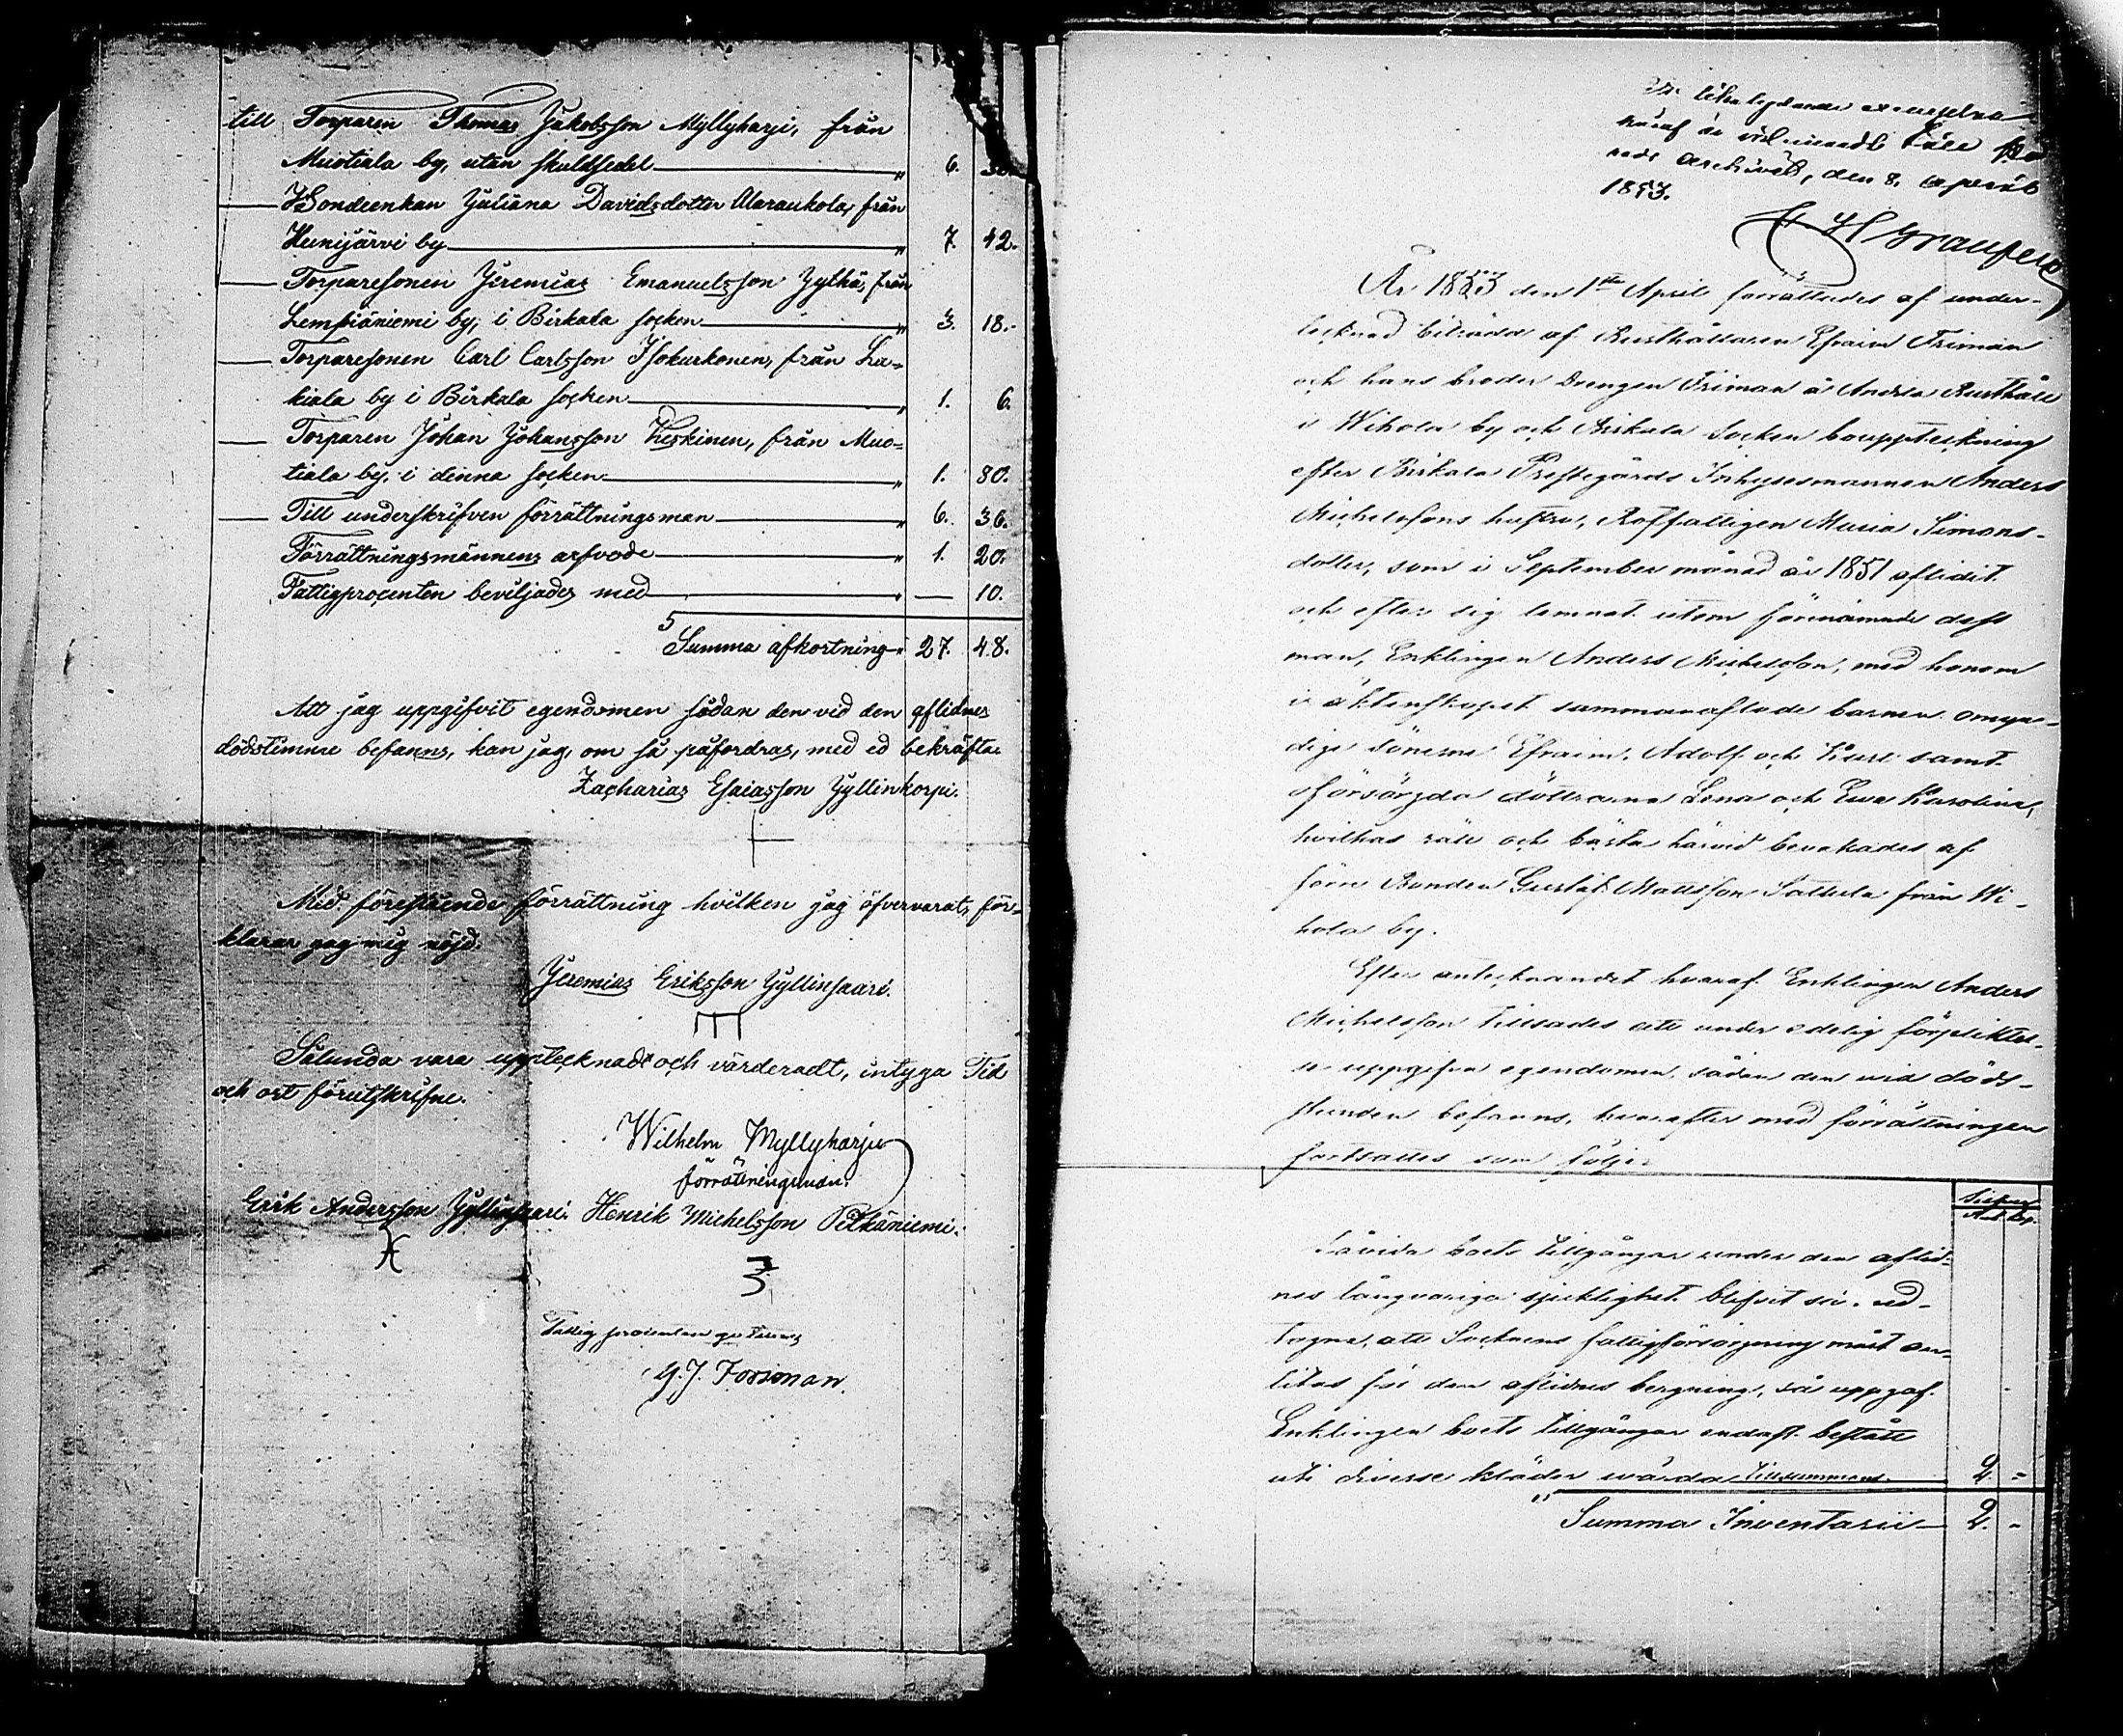 till Torparen Thomas Jakobsson Myllyharju, från
Muotiala by, utan skuldsedel " 6.
Juliana Davidsdotter Alaraukola, från
Hunijärvi by " 7. 42.
Torparesonen Jeremias Emanuelsson Jylhä, från
Lempiäniemi by, i Birkala socken " 3. 18.
Torparesonen Carl Carlsson Isokurkonen, från La-
kiala by i Birkala socken " 1. 6.
Torparen Johan Johansson Keskinen, från Muo-
tiala by, i denna socken " 1. 80.
Till underskrifven förrättningsman " 6. 36.
Förrättningsmännens arfvode " 1. 20.
Fattigprocenten beviljades med " — 10.
Summa afkortning 27. 48.
Att jag uppgifvit egendomen sådan den vid den aflidnes
dödstimme befanns, kan jag, om så påfordras, med ed bekräfta.
Zacharias Esaiasson Jyllinkorpi.
Med förestående förrättning hvilken jag öfvervarat, för-
klarar jag mig nöjd.
Jeremias Eriksson Jyllinsaari.
Sålunda vara upptecknadt och värderadt, intyga Tid
och ort förutskrifne.
Wilhelm Myllyharju
förrättningsman.
Erik Andersson Jyllinsaari. Henrik Michelsson Pitkäniemi.
Fattig procenten
G. J. Forsman.
lika lydande exemplar
häraf är
archivet, den 8. April
1853.
År 1853 den 1ste April förrättades af under-
tecknad biträdd af Rusthållaren Efraim Friman
och hans broder Drengen Friman å Andela Rusthåll
i Wihola by och Birkala Socken bouppteckning
efter Birkala Prestegårds Inhysesmannen Anders
Michelssons hustru, Rotfattigen Maria Simons-
dotter, som i September månad år 1851 aflidit
och efter sig lemnat utom förenämnde dess
man, Enklingen Anders Michelsson, med honom
i äktenskapet sammanaflade barnen omyn-
dige sönerne Efraim, Adolf och Karl samt
oförsörgda döttrarna Lena och Eva Karolina,
hvilkas rätt och bästa härvid bevakades af
förre Bonden Gustaf Mattsson Pattula från Wi-
hola by.
Efter antecknandet häraf Enklingen Anders
Michelsson tillsades att under edelig förpliktel-
se uppgifva egendomen, sådan den wid döds-
stunden befanns, hvarefter med förrättningen
fortsattes som följer
Silfver
Rub. Kop.
Såvida boets tillgångar under den aflid-
nes långvariga sjuklighet blifvit så med-
tagne, att Socknens fattigförsörgning måst an-
litas för den aflidnes bergning, så uppgaf
Enklingen boets tillgångar endast bestått
uti diverse kläder wärda tillsammans 2. -
Summa Inventarii 2. -